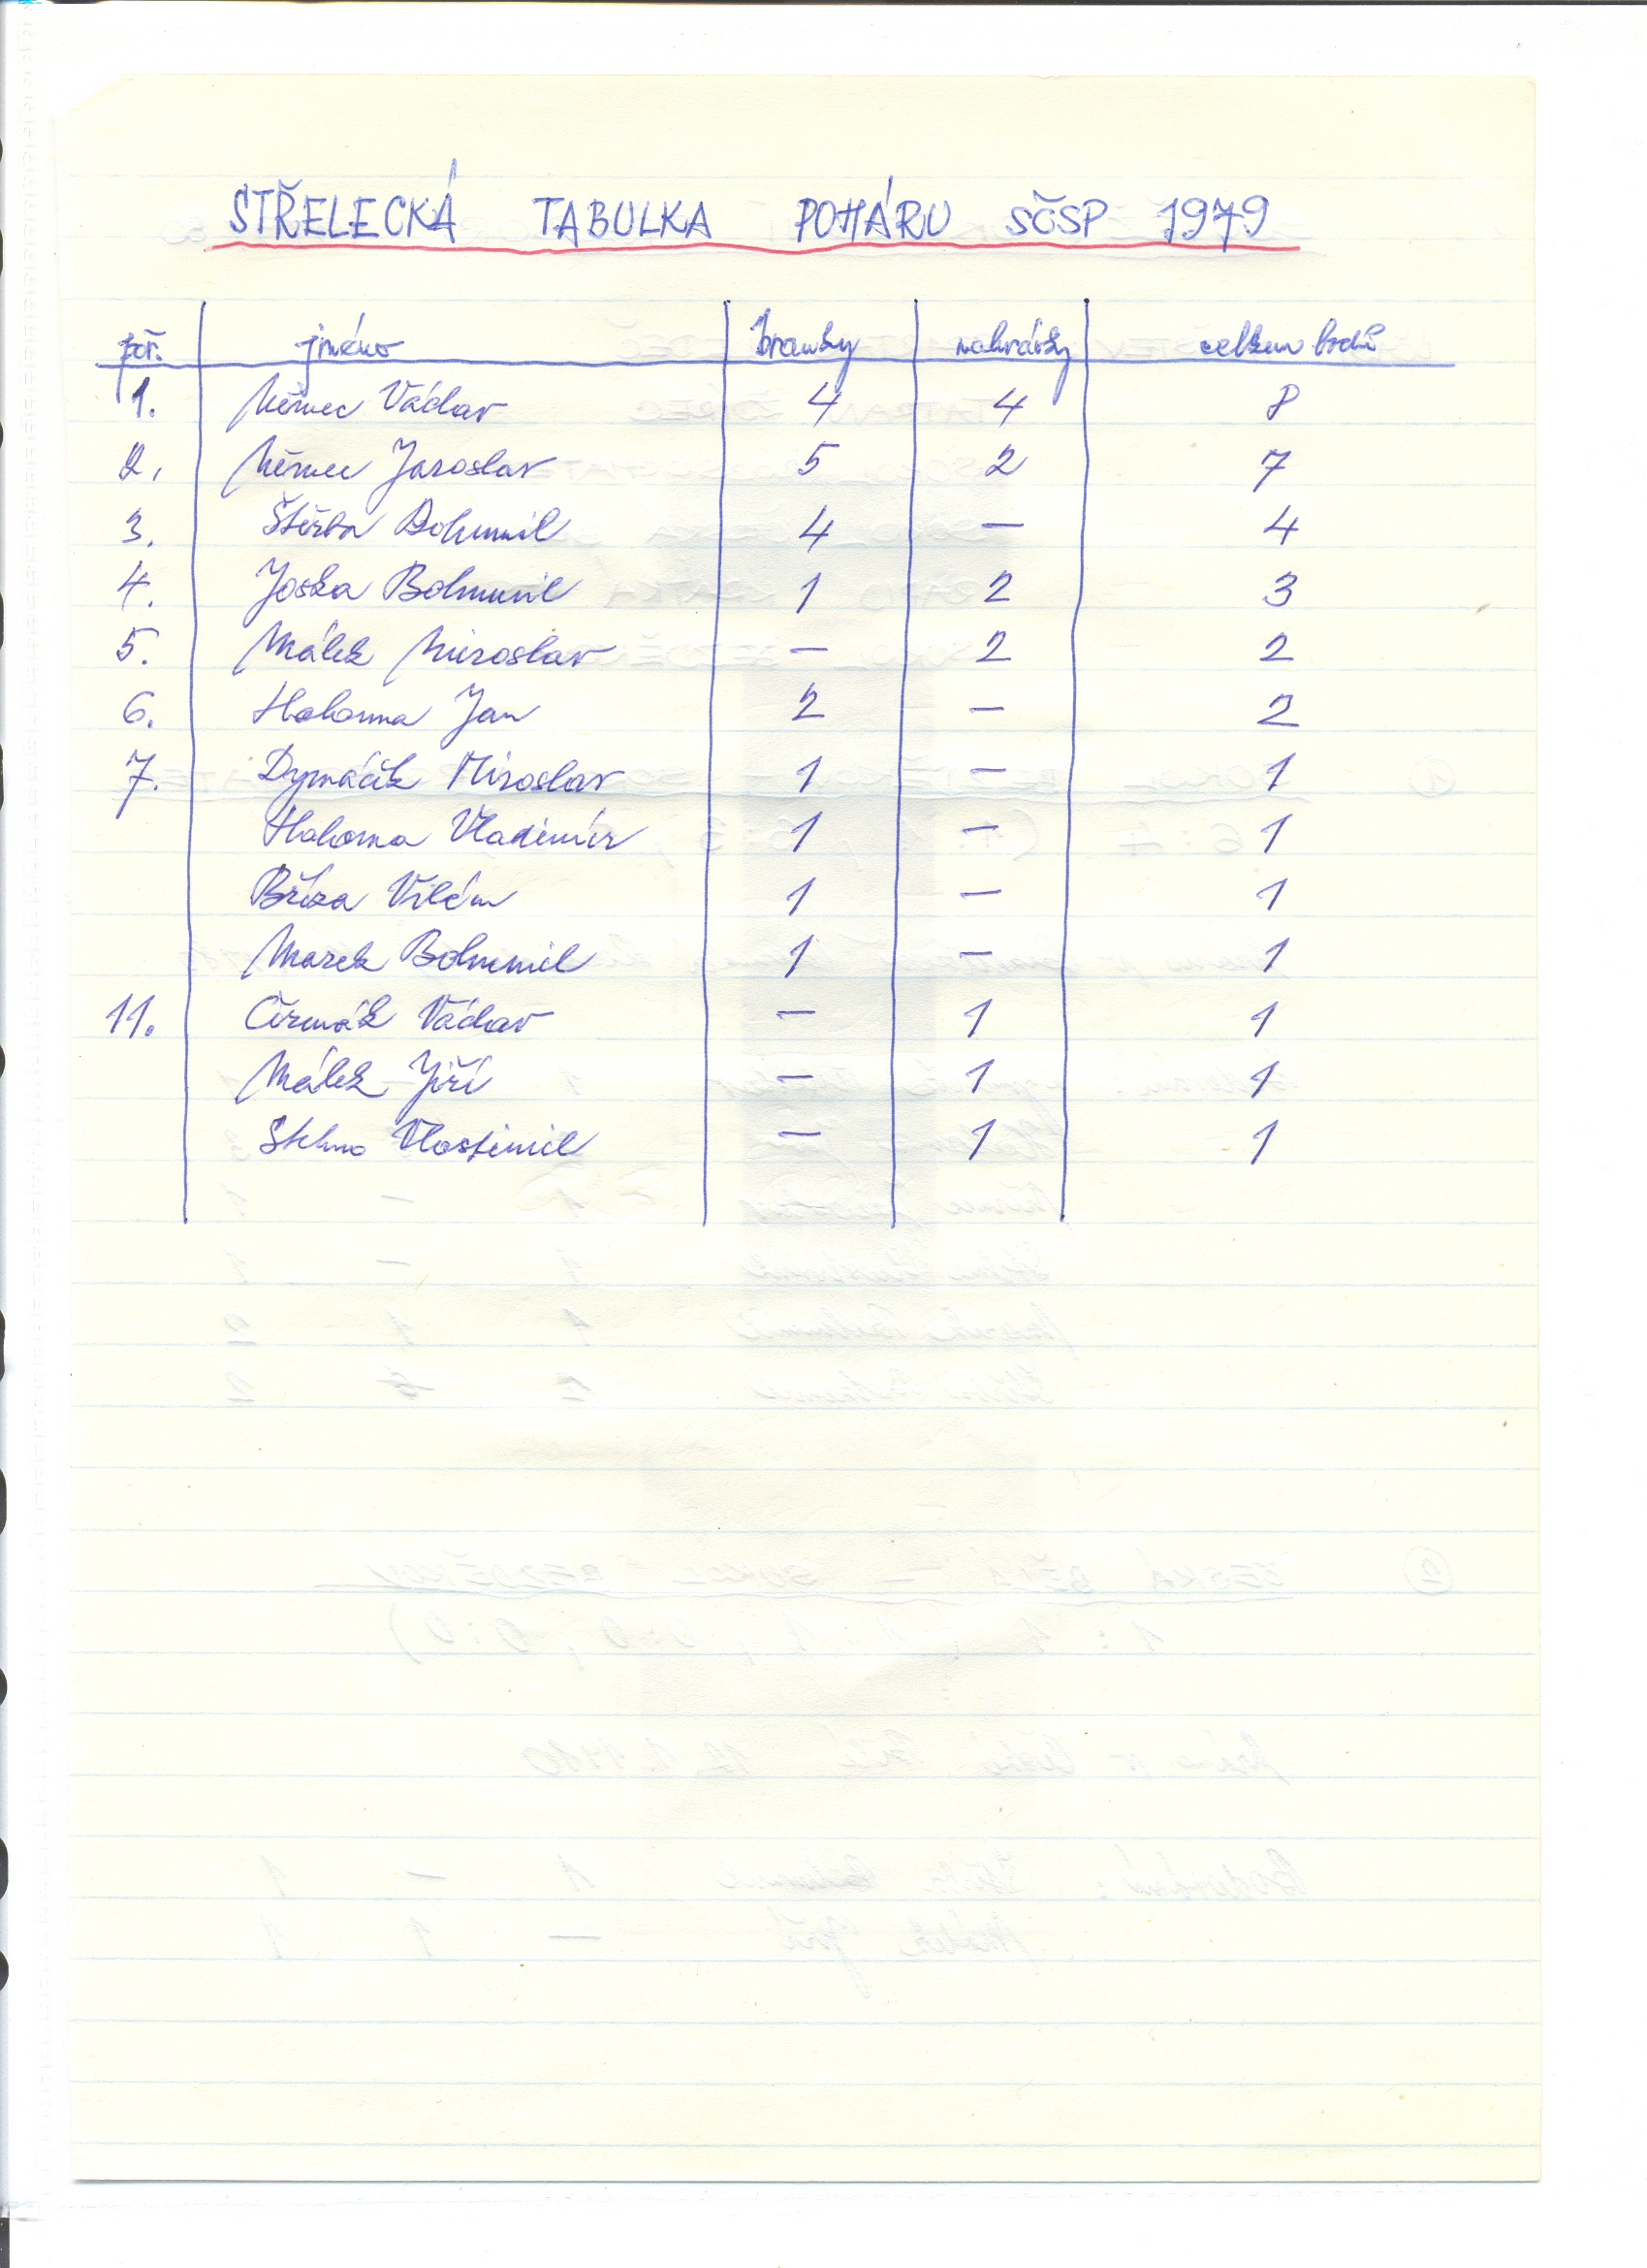 STŘELECKÁ TABULKA POHÁRU SČSP 1979
poř. jméno branky nahrávky celkem bodů
1. Němec Václav 4 4 8
2. Němec Jaroslav 5 2 7
3. Štěrba Bohumil 4 — 4
4. Joska Bohumil 1 2 3
5. Málek Miroslav — 2 2
6. Halouna Jan 2 — 2
7. Dymáček Miroslav 1 — 1
Halouna Vladimír 1 — 1
Bříza Vilém 1 — 1
Marek Bohumil 1 — 1
11. Čermák Václav — 1 1
Málek Jiří — 1 1
Stehno Vlastimil — 1 1